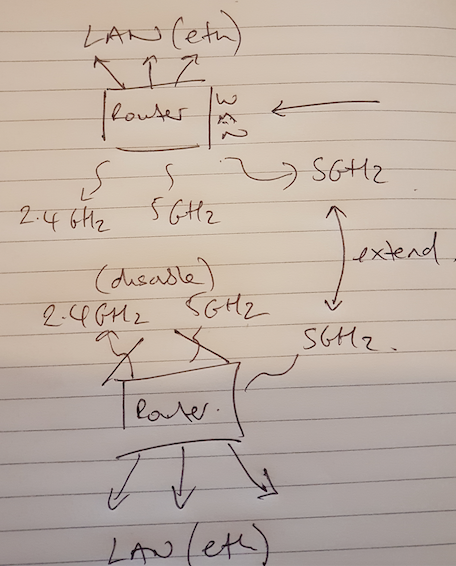 LAN (eth)
Router WAN
5GHz
2.4 GHz 5GHz
extend
(disable)
2.4GHz 5GHz
5GHz.
Router.
LAN (eth)